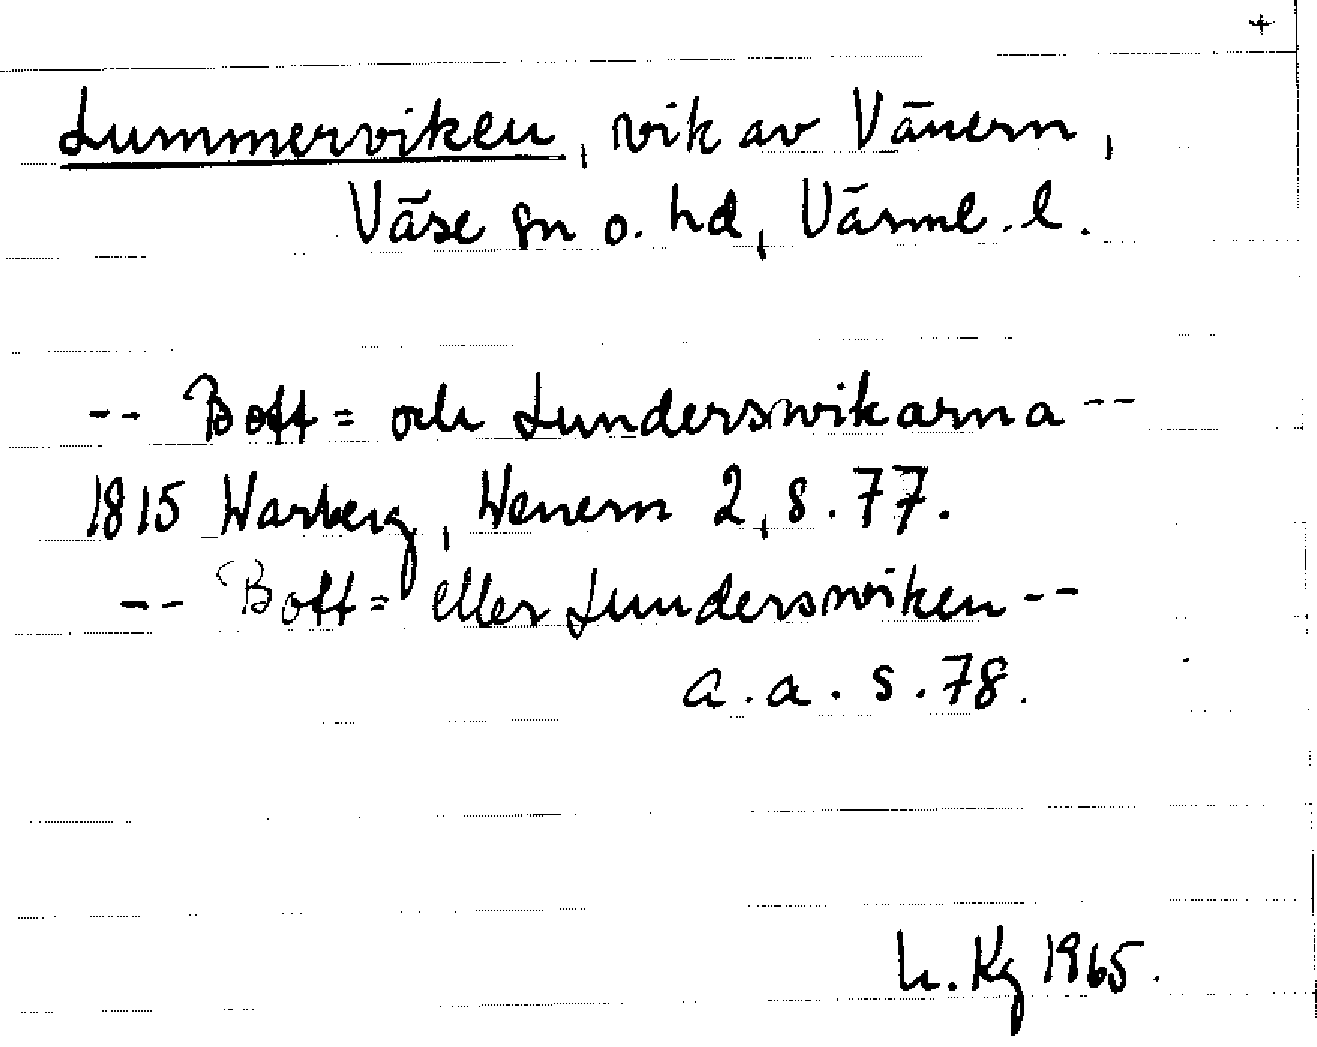 +
Lummerviken, vik av Vänern,
Väse sn o. hd, Värml. l.
-- Boff= och Lunderswikarna --
1815 Warberg, Wenern 2, s. 77.
-- Boff= eller Lunderswiken --
a. a. s. 78.
L. Kg 1965.